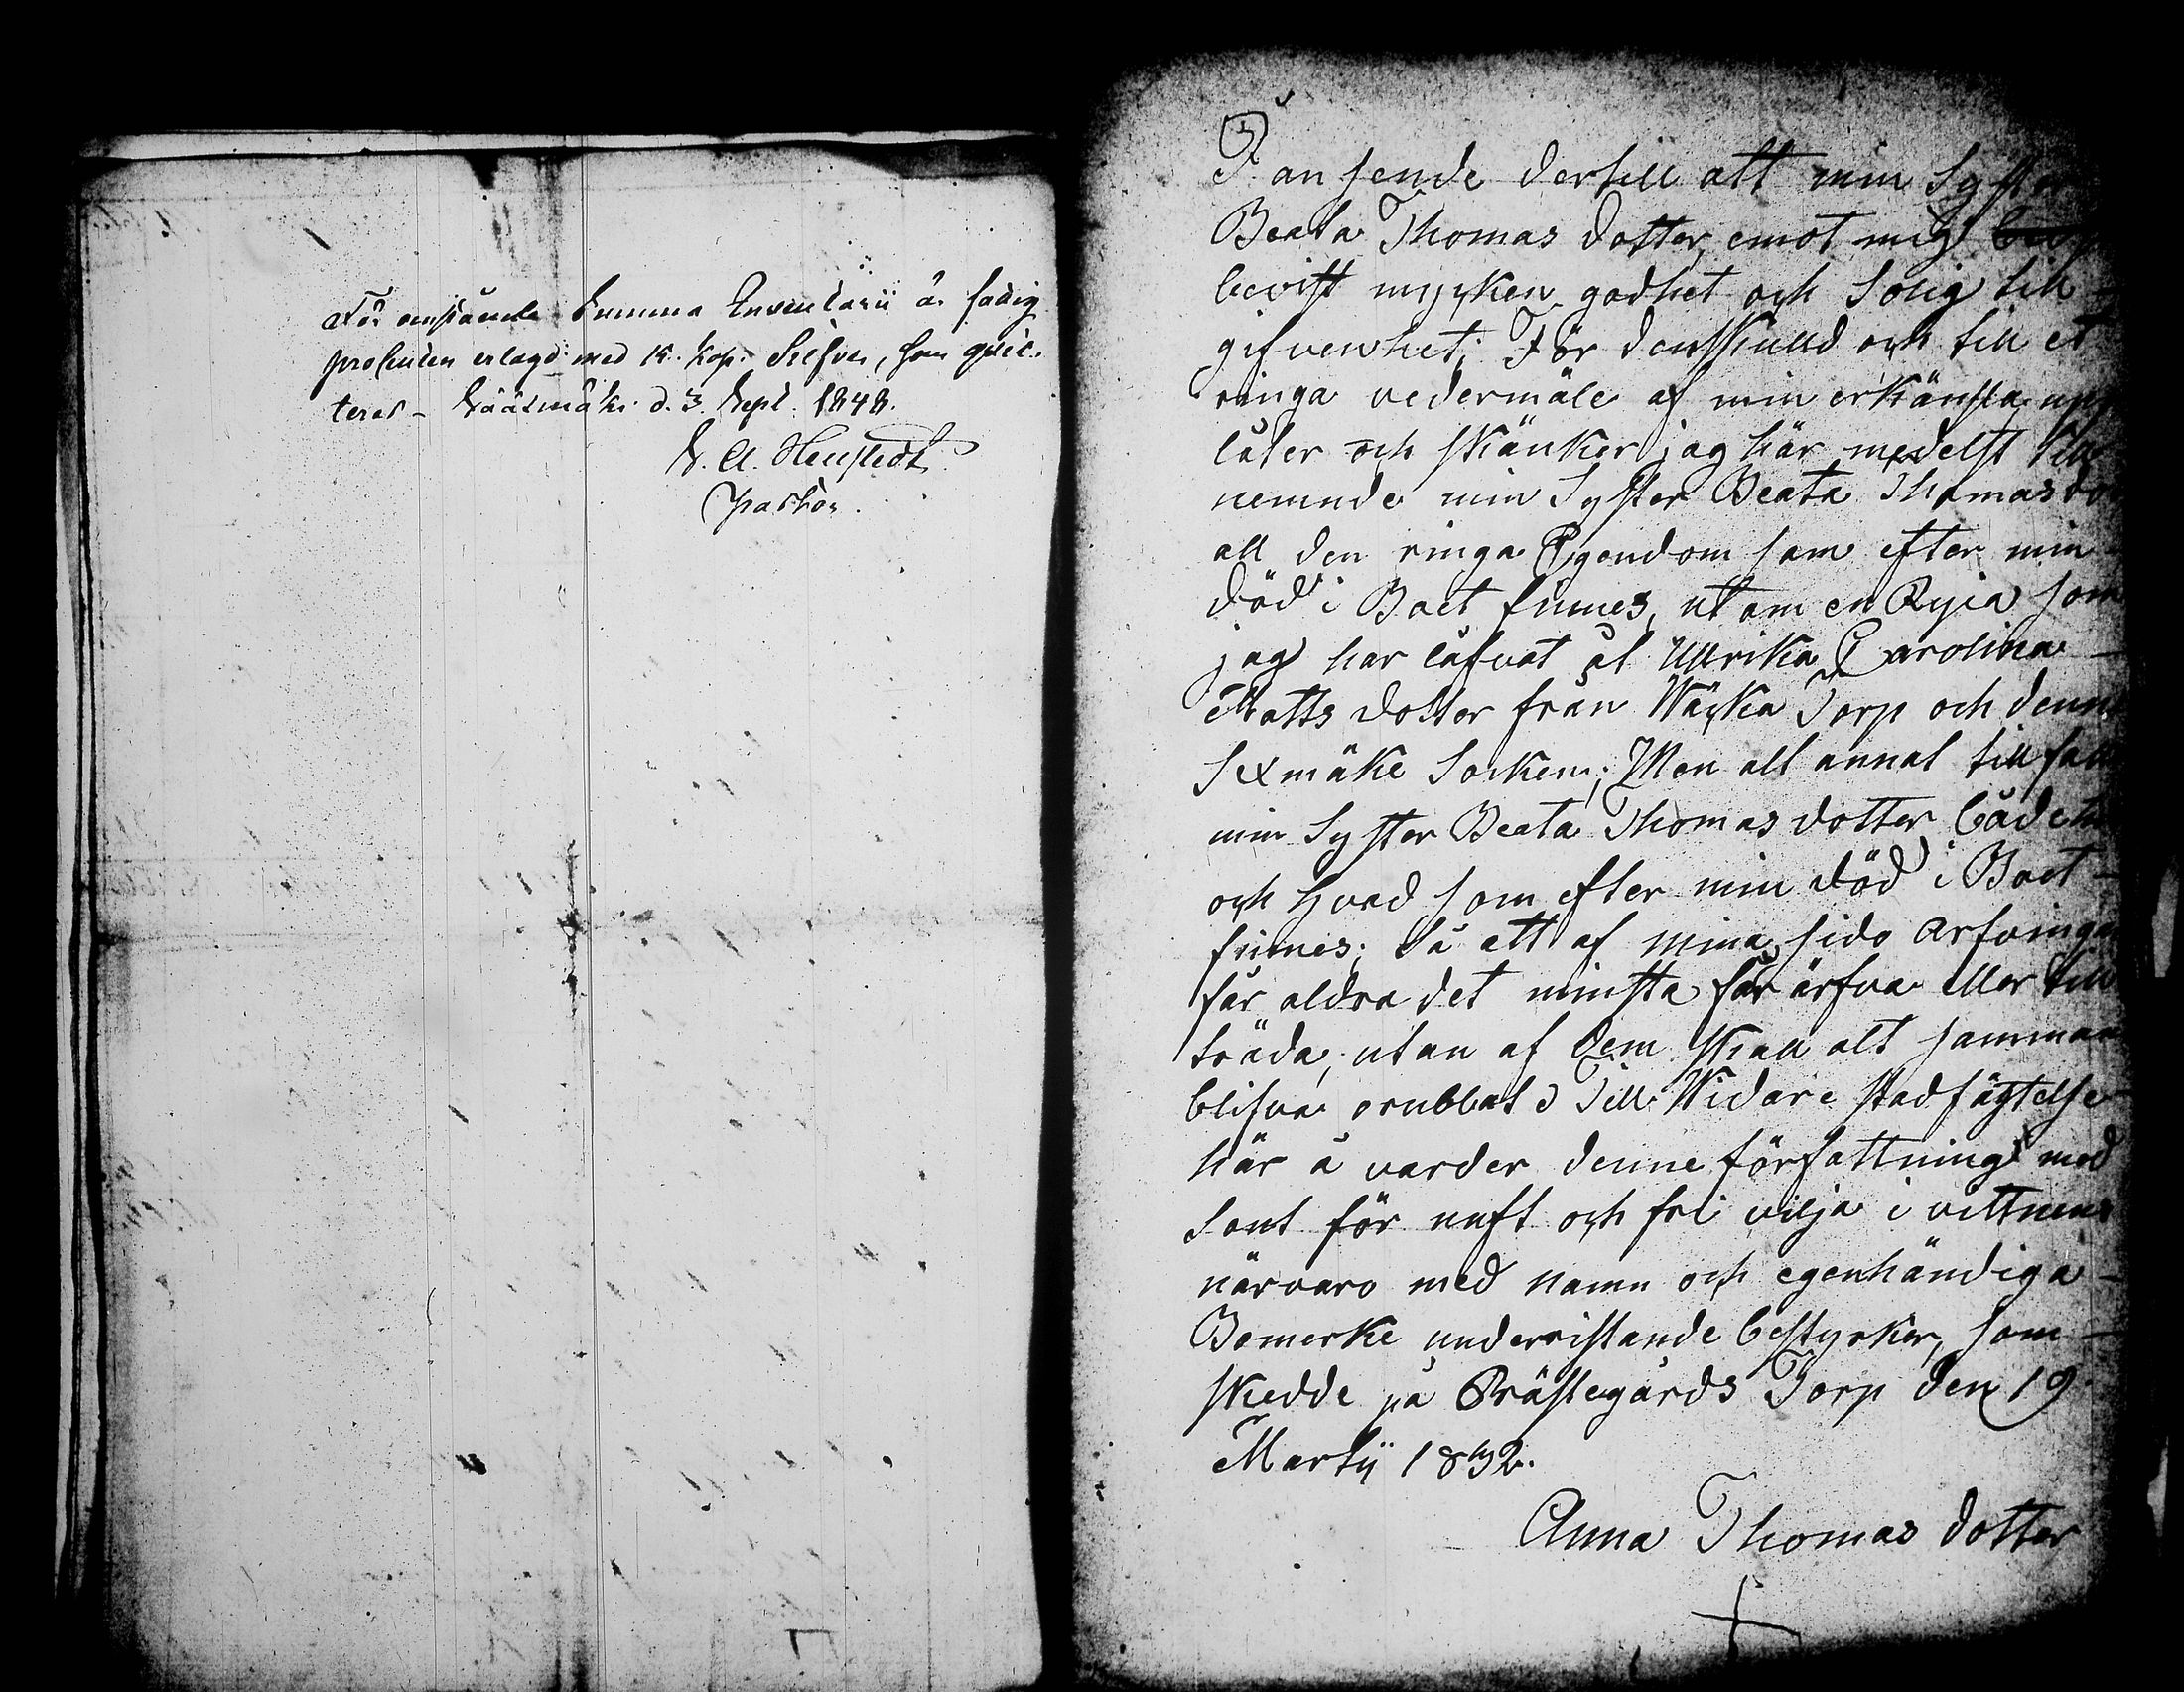 För omstående Summa Inventarii är fattig
procenten erlagd med 14. kop. Silfver, som quit-
teras - Sääxmäki d. 3. Sept. 1848.
Pastor.
I an seende dertill att min Syster
Beata Thomas dotter, emot mig
bevist mycken godhet och Solig till
gifvenhet; För denskulld och till et
ringa vedermäle af min erkänsla up
låter och skänker jag här medelst till
nemnde min Syster Beata Thomas do
all den ringa Egendom som efter min
död i Boet finnes, utom en Ryia som
jag har låfvat åt Ullrika Carolina
Matts dotter från Torp och denne
Sexmäke Socken; Men alt annat tillfall
min Syster Beata Thomas dotter både
och hvad som efter min död i Boet
finnes; Så att af mina sido arfvingar
får aldra det minsta får ärfva eller till
träda, utan af dem skall alt samman
blifva orubbat Till Widare stadfägtelse
här å varder denne författning med
sont för nuft och fri vilja i vittnens
närvaro med namn och egenhändiga
Bomerke underristande bestyrker, som
skedde på Prästegårds Torp den 19
Martij 1832.
Anna Thomas dotter